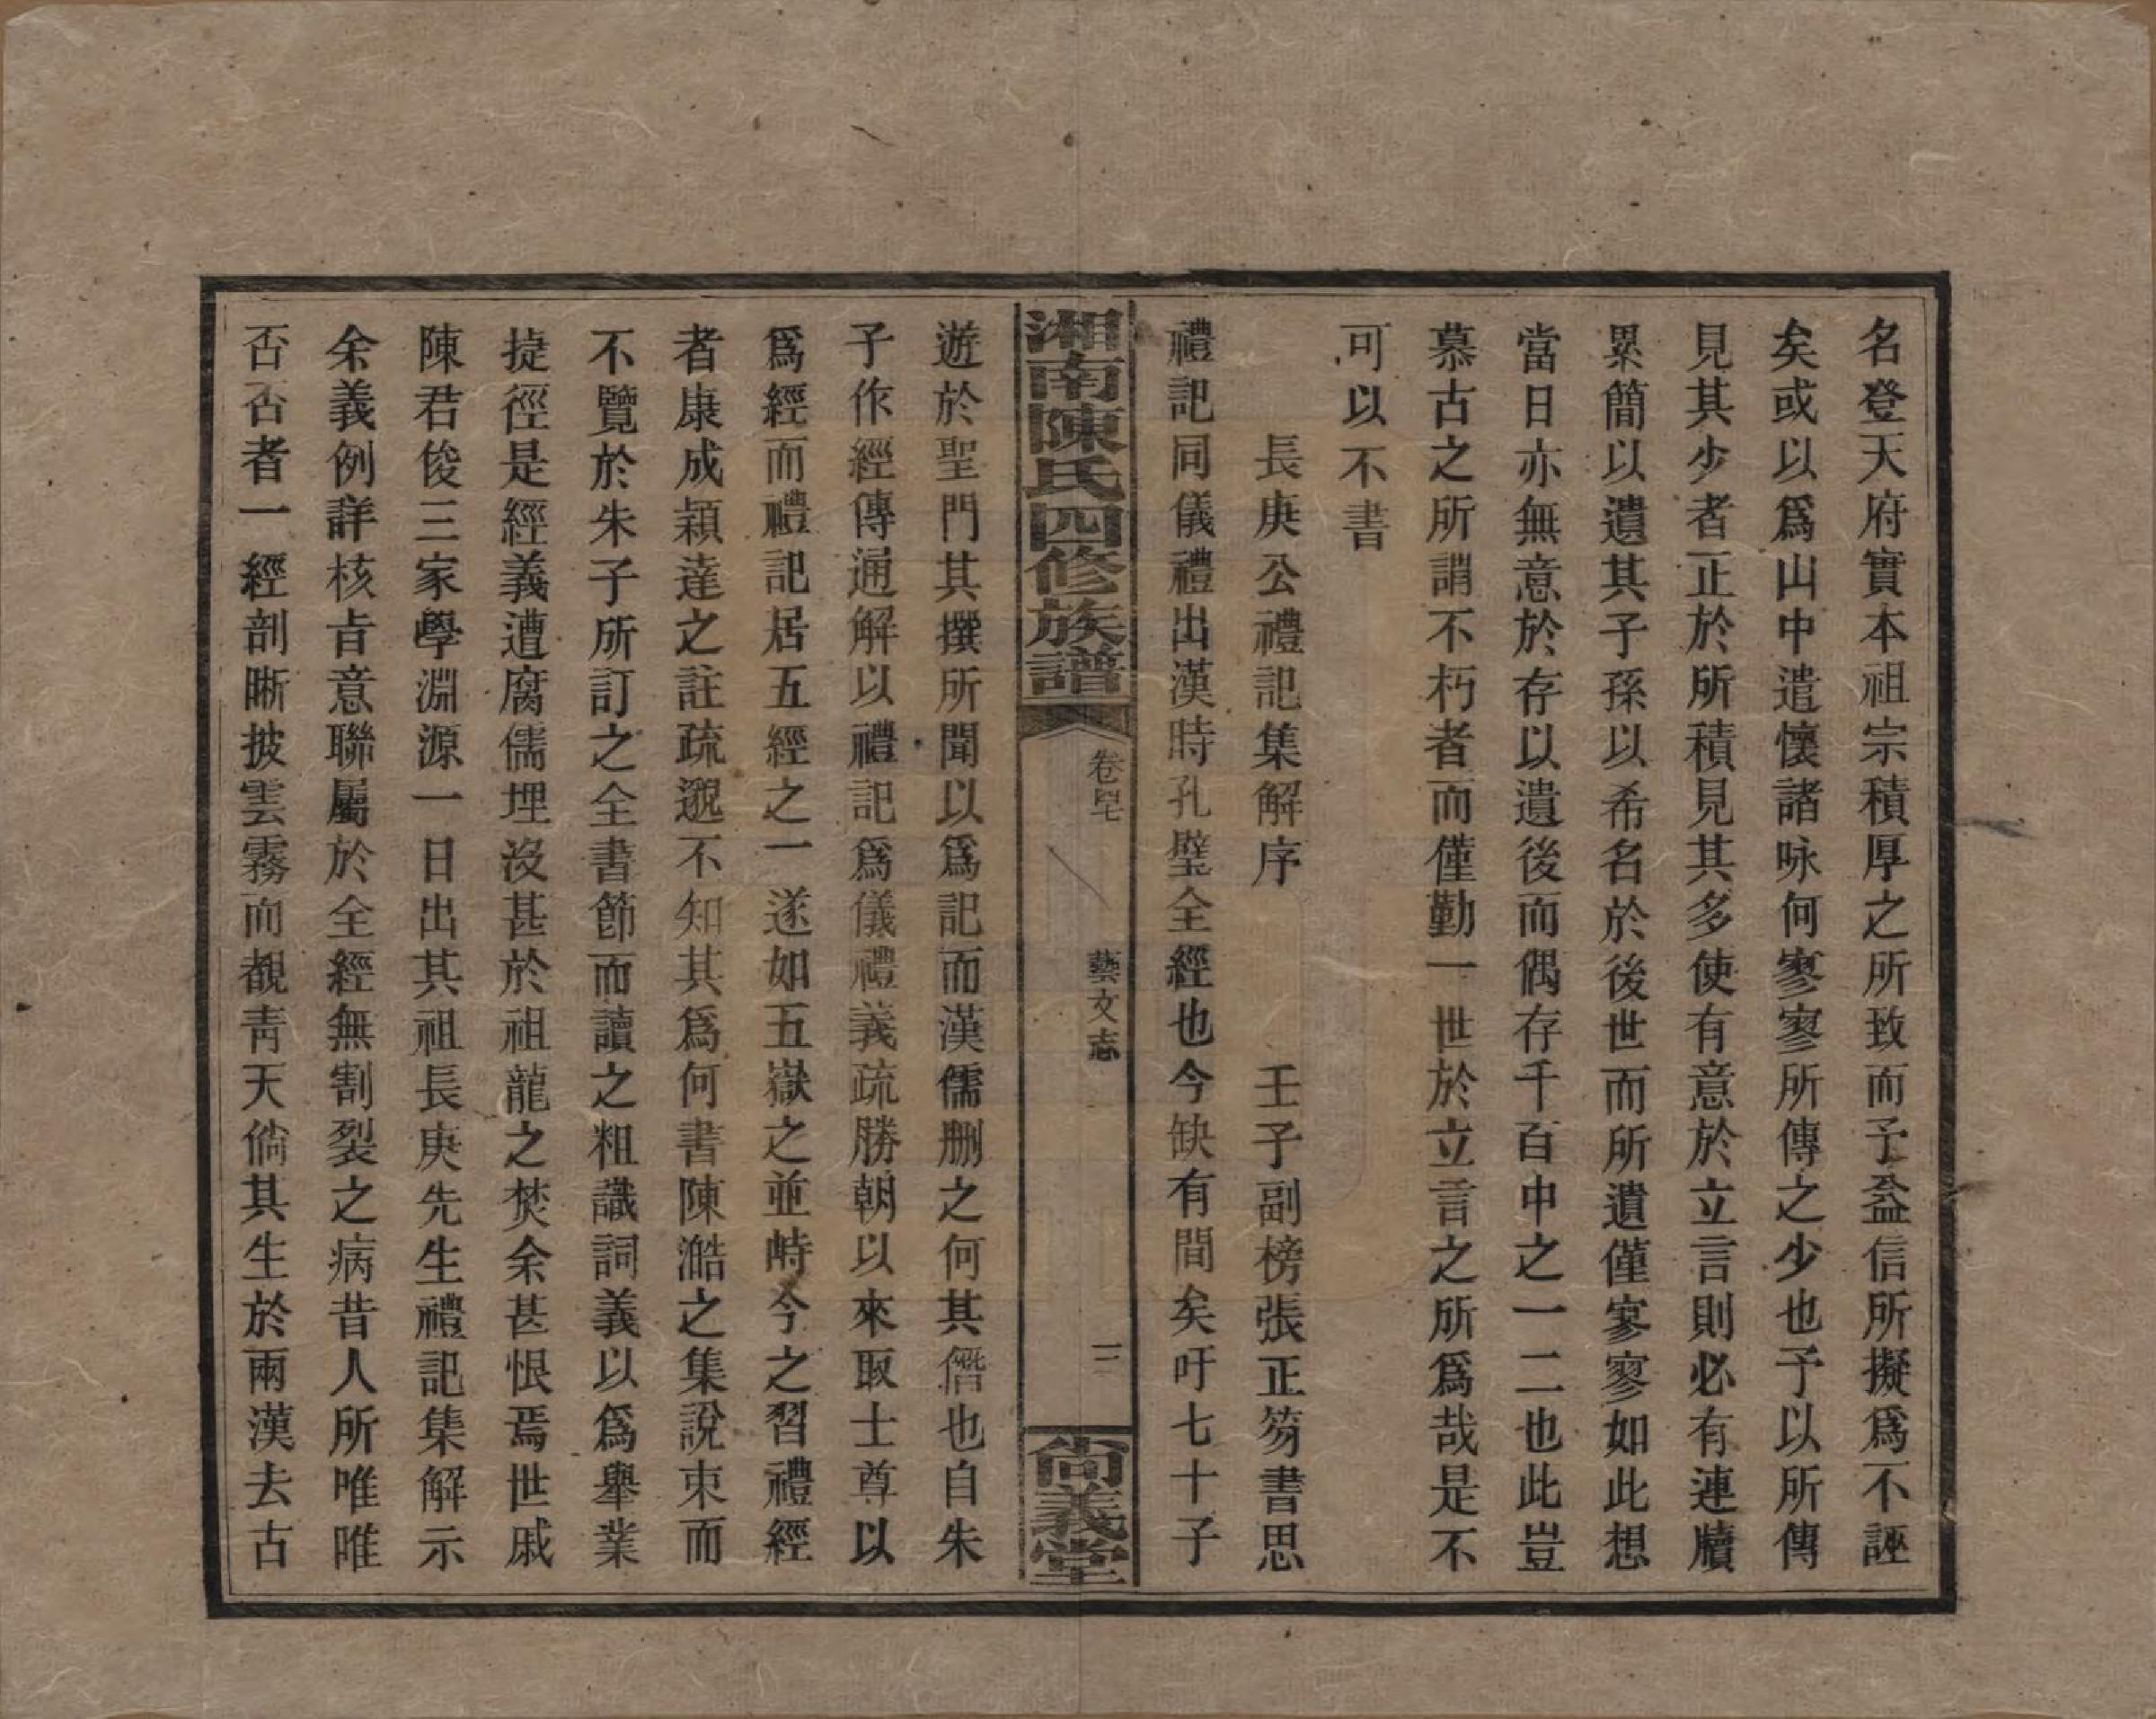 名登天府實本祖宗積厚之所致而予益信所擬爲不誣
矣或以爲山中遣懷諸咏何寥寥所傳之少也予以所傳
見其少者正於所積見其多使有意於立言則必有連牘
累簡以遺其子孫以希名於後世而所遺僅寥寥如此想
當日亦無意於存以遺後而偶存千百中之一二也此豈
慕古之所謂不朽者而僅勤一世於立言之所爲哉是不
可以不書
長庚公禮記集解序　壬子副榜張正笏書思
禮記同儀禮出漢時孔壁全經也今缺有間矣吁七十子
湘南陳氏四修族譜　卷四七　藝文志　三　尚義堂
遊於聖門其撰所聞以爲記而漢儒刪之何其僭也自朱
子作經傳通解以禮記爲儀禮義疏勝朝以來取士尊以
爲經而禮記居五經之一遂如五嶽之並峙今之習禮經
者康成穎達之註疏邈不知其爲何書陳澔之集說束而
不覽於朱子所訂之全書節而讀之粗識詞義以爲舉業
捷徑是經義遭腐儒埋沒甚於祖龍之焚余甚恨焉世戚
陳君俊三家學淵源一日出其祖長庚先生禮記集解示
余義例詳核旨意聯屬於全經無割裂之病昔人所唯唯
否否者一經剖晰披雲霧而覩靑天倘其生於兩漢去古